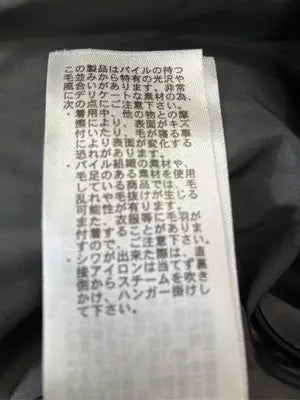 この製品はパイルの持つ
毛並みから特有の光沢や
風合いがあります。非常
にデリケートな素材の為、
次の点にご注意下さい。
・着用中、他の物との摩
擦により、表面がキズ
付いたり、毛が寝る事
により表面が変化する
恐れがあります。
・パイル組織の素材や、
毛足のある素材を使用
している商品では、毛
乱れや毛抜けが生じる
可能性が有ります。
また、衣服等に毛羽が
付着することがありま
すので、ご注意下さい。
・シワが出来た際は、直
接アイロンは当てず裏
側からスチームを吹き
かけ、ハンガーに掛け
て下さい。